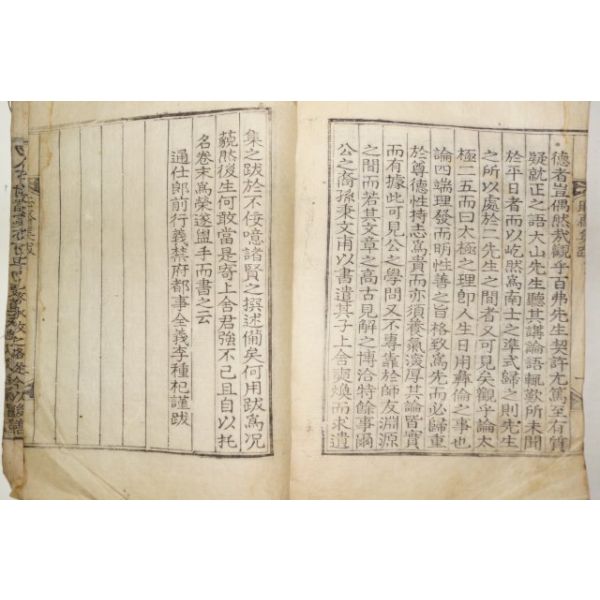 德者豈偶然哉觀乎百弗先生契許尤篤至有質
疑就正之語大山先生聽其講論語輒歎所未聞
於平日者而以屹然爲南士之準式歸之則先生
之所以處於二先生之間者又可見矣觀乎論太
極二五而曰太極之理卽人生日用彛倫之事也
論四端理發而明性善之旨格致爲先而必歸重
於尊德性持志爲貴而亦須養氣深厚其論皆實
而有據此可見公之學問又不專靠於師友淵源
之間而若其文章之高古見解之博洽特餘事爾
公之裔孫秉文甫以書遺其子上舍奭煥而求遺
集之跋於不佞噫諸賢之撰述備矣何用跋爲况
藐然後生何敢當是寄上舍君強不已且自以托
名卷末爲榮遂盥手而書之云
通仕郎前行義禁府都事全義李種杞謹跋